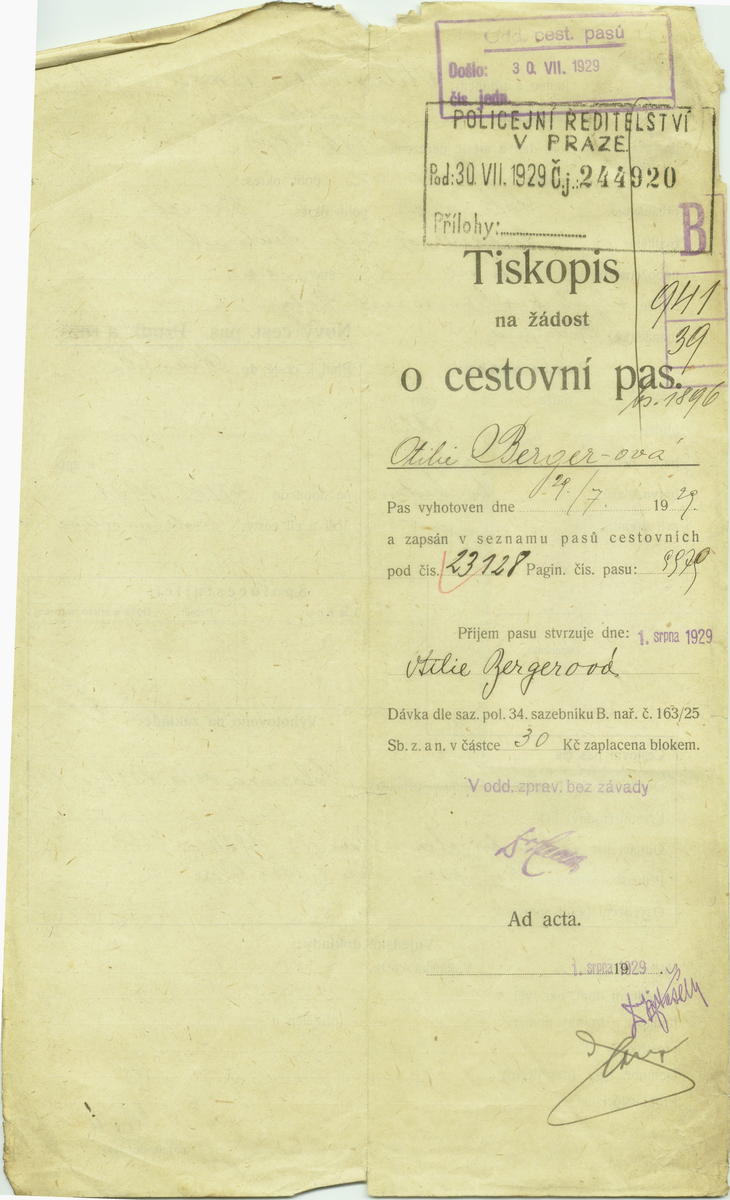 Odd. cest. pasů
Došlo: 30. VII. 1929
čís. jedn.
POLICEJNÍ ŘEDITELSTVÍ
V PRAZE
Pod: 30. VII. 1929 Č.j.: 244920
Přílohy:
B
Tiskopis
941
na žádost
39
o cestovní pas.
1896
Otilie Berger-ová
Pas vyhotoven dne 29/7. 1929.
a zapsán v seznamu pasů cestovních
pod čís. 23128 Pagin. čís. pasu:
Příjem pasu stvrzuje dne: 1. srpna 1929
Otilie Bergerová
Dávka dle saz. pol. 34. sazebníku B. nař. č. 163/25
Sb. z. a n. v částce 30 Kč zaplacena blokem.
V odd. zprav. bez závady
Ad acta.
1. srpna 1929